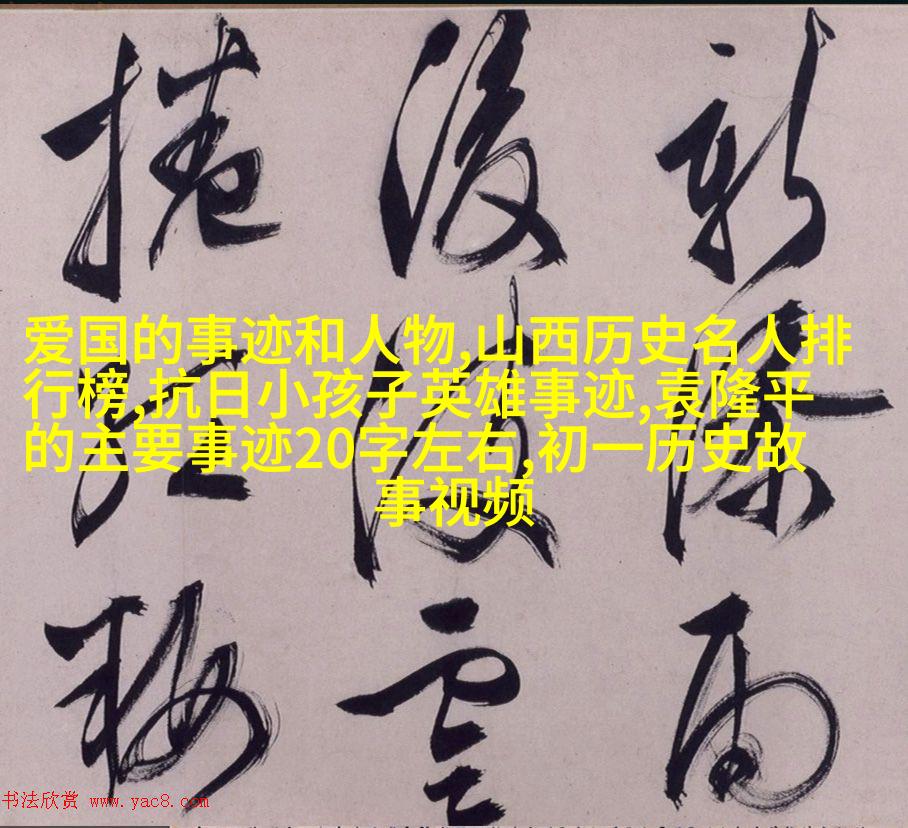 新 雨
後 雲
捲 梅
爱国的事迹和人物,山西历史名人排
行榜,抗日小孩子英雄事迹,袁隆平
的主要事迹20字左右,初一历史故
事视频
书法欣赏 www.yac8.com